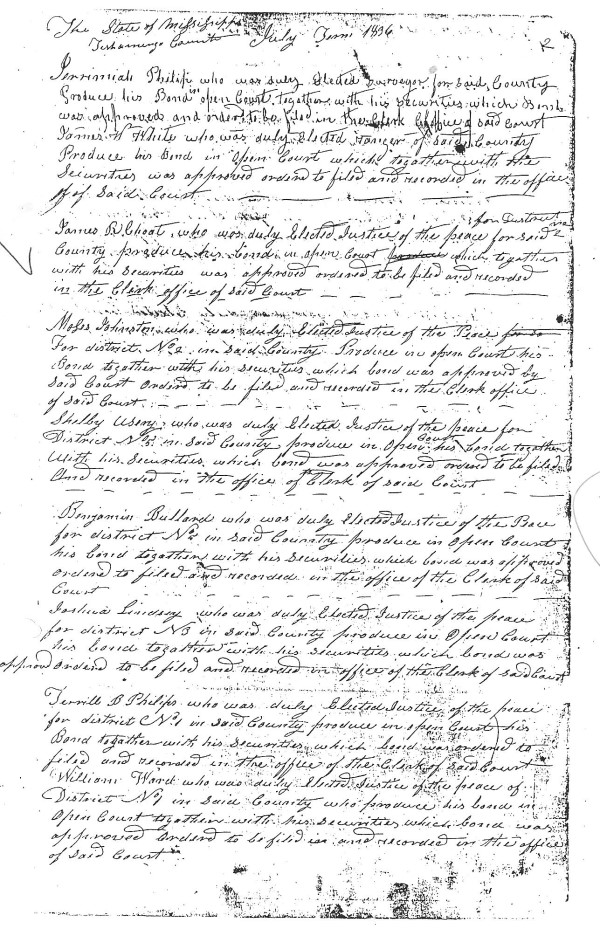 The State of Mississippi
Tishamingo County July Term 1836
2
Jerremiah Philips who was duly Elected Surveyor for said County
Produce his Bond in open Court together with his Securities which Bond
was approved and order to be filed in the Clerk office of said Court
James H White who was duly Elected ranger of said Country
Produce his Bond in Open Court which together with the
Securities was approved orderd to filed and recorded in the office
of of Said Court
for District No 2
James R Choat who was duly Elected Justice of the peace for said
County produce his bond in open Court produce which together
with his Securities was approved ordered to be filed and recorded
in the Clerk office of said Court
Moses Johnston who was duly Elected Justice of the Peace for
For district No 2 in said County Produce in open Court his
Bond together with his securities which bond was approved by
said Court Orderd to be filed and recorded in the Clerk office
of said Court
Shelby Usery who was duly Elected Justice of the peace for
District No 5 in said County produce in Open Court his bond together
With his Securities which bond was approved orderd to be filed
And recorded in the office of Clerk of said Court
Benjamin Bullard who was duly Elected Justice of the Peace
for district No in said Country produce in Open Court
his bond together with his Securities which bond was approved
orderd to filed and recorded in the office of the Clerk of said
Court
Joshua Lindsey who was duly Elected Justice of the peace
for district No 3 in said County produce in Open Court
his bond together with his securities which bond was
approved Orderd to be filed and recorded in office of the Clerk of said Court
Terrill B Philips who was duly Elected Justice of the peace
for district No 1 in said County produce in open Court his
Bond together with his Securities which bond was ordered to
filed and recorded in the office of the Clerk of said Court
William Ward who was duly Elected Justice of the peace of
District No 1 in said County who produce his bond in
Open Court together with his securities which bond was
approved Orderd to be filed in and recorded in the office
of said Court